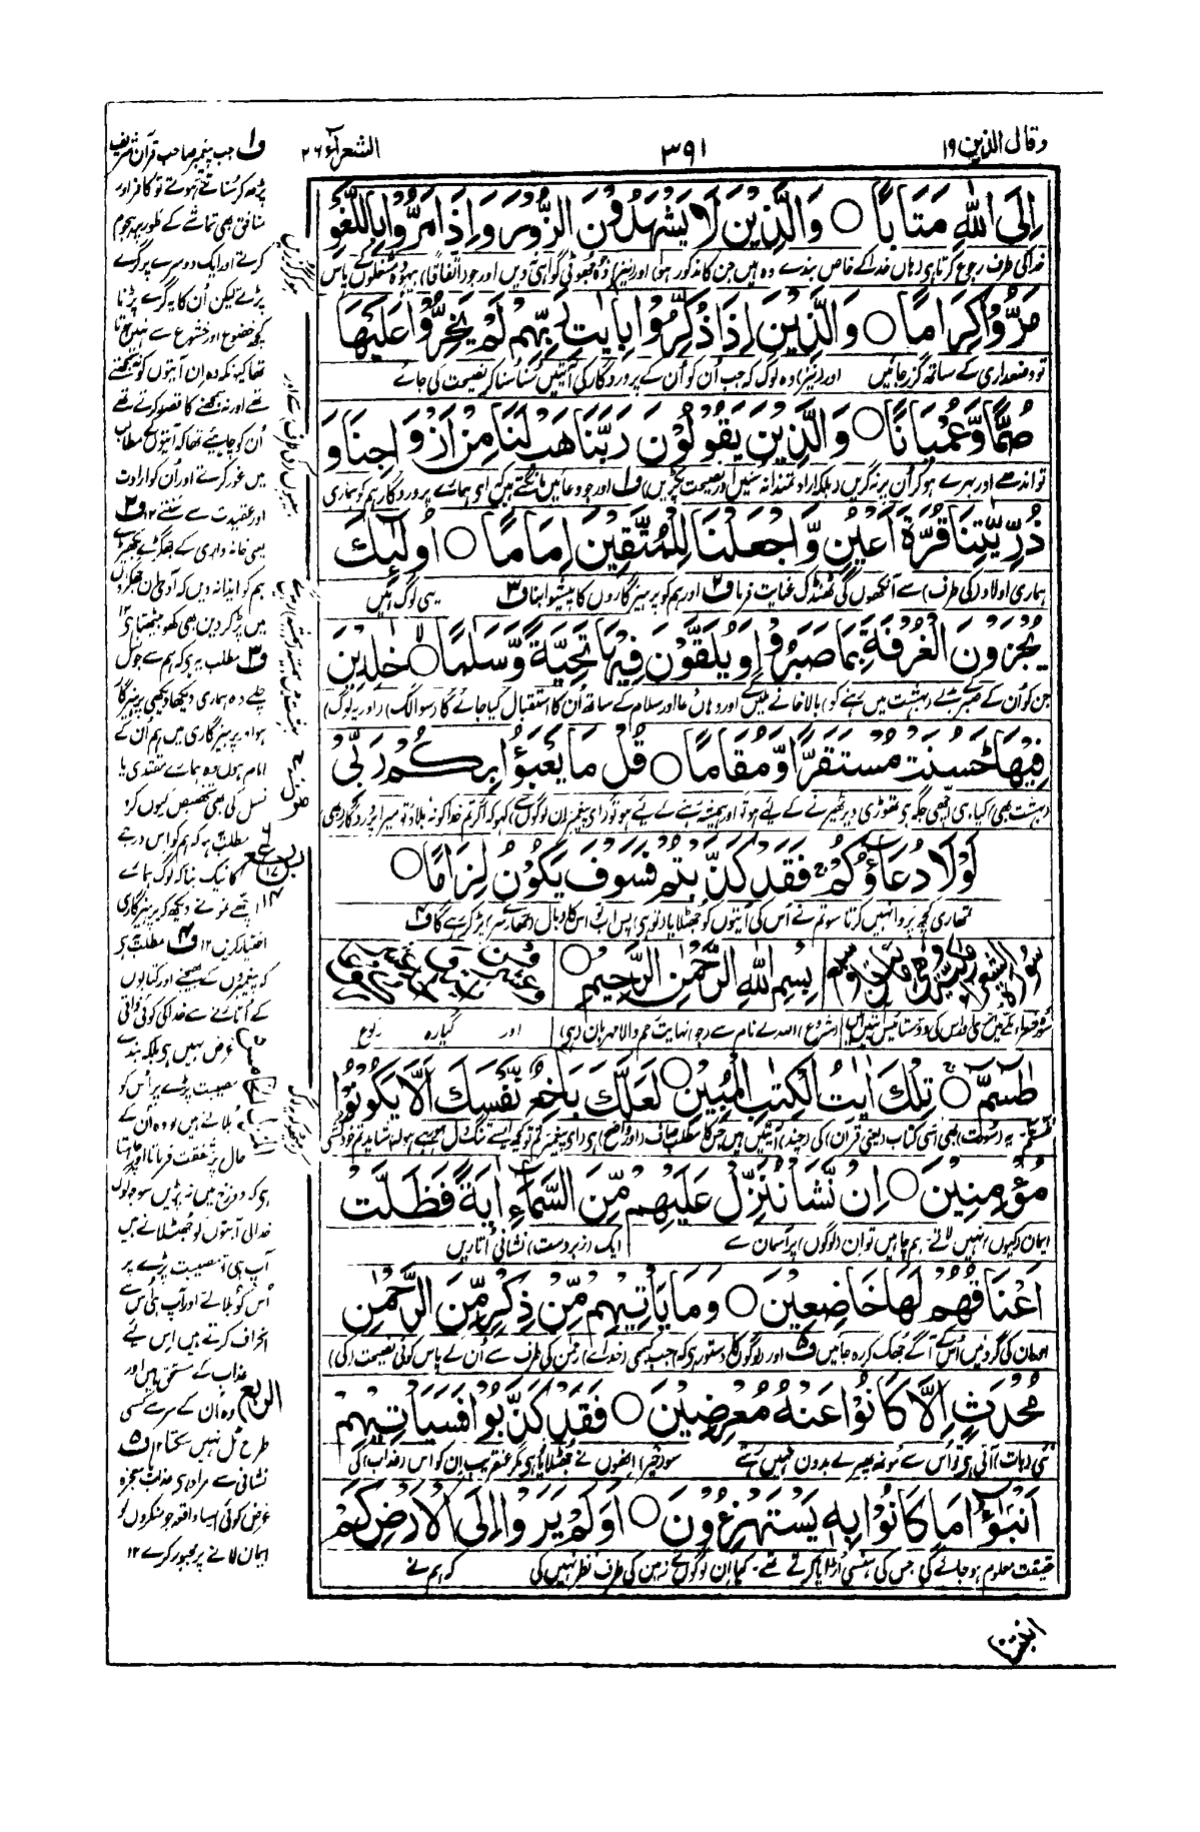 وقال الذين ١٩
٣٩١
الشعرآء ٢٦
اِلَى اللهِ مَتَابًا ○ وَالَّذِيْنَ لَا يَشْهَدُوْنَ الزُّوْرَ وَاِذَا مَرُّوْا بِاللَّغْوِ
خدا کی طرف رجوع کرتا ہی وہاں خدا کے خاص بندے وہ ہیں جن کا مذکور ہوا اور (نیز) وہ جھوٹی گواہی نہ دیں اور جو (اتفاقًا) بیہودہ مشغلوں کے پاس
مَرُّوْا كِرَامًا ○ وَالَّذِيْنَ اِذَا ذُكِّرُوْا بِاٰيٰتِ رَبِّهِمْ لَمْ يَخِرُّوْا عَلَيْهَا
تو وضعداری کے ساتھ گزر جائیں اور (نیز) وہ لوگ کہ جب اُن کو اُن کے پروردگار کی آیتیں سُنا سُنا کر نصیحت کی جائے
صُمًّا وَّعُمْيَانًا ○ وَالَّذِيْنَ يَقُوْلُوْنَ رَبَّنَا هَبْ لَنَا مِنْ اَزْوَاجِنَا وَ
تو اندھے اور بہرے ہو کر اُن پر نہ گریں (بلکہ ارادتمندانہ سُنیں اور نصیحت پکڑیں) ف۱ اور جو دعائیں مانگتے ہیں کہ اے ہمارے پروردگار ہم کو ہماری
ذُرِّيّٰتِنَا قُرَّةَ اَعْيُنٍ وَّاجْعَلْنَا لِلْمُتَّقِيْنَ اِمَامًا ○ اُولٰٓئِكَ
ہماری اولاد (کی طرف) سے آنکھوں کی ٹھنڈک عنایت فرما ف۲ اور ہم کو پرہیزگاروں کا پیشوا بنا ف۳ یہی لوگ ہیں
يُجْزَوْنَ الْغُرْفَةَ بِمَا صَبَرُوْا وَيُلَقَّوْنَ فِيْهَا تَحِيَّةً وَّسَلٰمًا ○ خٰلِدِيْنَ
جن کو اُن کے صبر کے بدلے (بہشت میں رہنے کو) بالا خانے ملیں گے اور وہاں دعا اور سلام کے ساتھ اُن کا استقبال کیا جائے گا (اور یہ لوگ)
فِيْهَا حَسُنَتْ مُسْتَقَرًّا وَّمُقَامًا ○ قُلْ مَا يَعْبَؤُا بِكُمْ رَبِّيْ
(بہشت بھی) کیا ہی اچھی جگہ ہی تھوڑی دیر ٹھہرنے کے لیے ہو تو اور ہمیشہ رہنے کے لیے ہو تو (اے پیغمبر ان لوگوں سے) کہو کہ اگر تم خدا کو نہ بلاؤ تو میرا پروردگار بھی
لَوْلَا دُعَآؤُكُمْ فَقَدْ كَذَّبْتُمْ فَسَوْفَ يَكُوْنُ لِزَامًا ○
تمھاری کچھ پروا نہیں کرتا سو تم نے اُس کی آیتوں کو جھٹلایا تو (یہی) اس کا وبال (تمھارے سر) پڑ کر رہے گا ف۴
بِسْمِ اللهِ الرَّحْمٰنِ الرَّحِيْمِ ○
(شروع) اللہ کے نام سے (جو) نہایت رحم والا مہربان (ہی) اور گیارہ رکوع
طٰسٓمّٓ ○ تِلْكَ اٰيٰتُ الْكِتٰبِ الْمُبِيْنِ ○ لَعَلَّكَ بَاخِعٌ نَّفْسَكَ اَلَّا يَكُوْنُوْا
مُؤْمِنِيْنَ ○ اِنْ نَّشَاْ نُنَزِّلْ عَلَيْهِمْ مِّنَ السَّمَآءِ اٰيَةً فَظَلَّتْ
ایمان (کیوں) نہیں لاتے ہم چاہیں تو ان (لوگوں) پر آسمان سے ایک (زبردست) نشانی اُتاریں
اَعْنَاقُهُمْ لَهَا خَاضِعِيْنَ ○ وَمَا يَاْتِيْهِمْ مِّنْ ذِكْرٍ مِّنَ الرَّحْمٰنِ
اور ان کی گردنیں اُس کے آگے جھک کر رہ جائیں ف۵ اور (لوگوں کا) دستور ہی کہ جب کبھی (خدائے) رحمٰن کی طرف سے اُن کے پاس کوئی نصیحت (کی)
مُحْدَثٍ اِلَّا كَانُوْا عَنْهُ مُعْرِضِيْنَ ○ فَقَدْ كَذَّبُوْا فَسَيَاْتِيْهِمْ
نئی (بات) آتی ہی تو اُس سے مُونھ پھیرے بدون نہیں رہتے سو (خیر) انھوں نے جھٹلایا ہی مگر عنقریب ان کو اس (عذاب) کی
اَنْۢبٰٓؤُا مَا كَانُوْا بِهٖ يَسْتَهْزِءُوْنَ ○ اَوَلَمْ يَرَوْا اِلَى الْاَرْضِ كَمْ
حقیقت معلوم ہو جائے گی جس کی ہنسی اُڑایا کرتے تھے۔ کیا ان لوگوں نے زمین کی طرف نظر نہیں کی کہ ہم نے
ف۱ جب پیغمبر صاحب قرآن شریف
پڑھ کر سُناتے ہوتے تو کافر اور
منافق بھی تماشے کے طور پر ہجوم
کرتے اور ایک دوسرے پر گرے
پڑتے لیکن اُن کا یہ گرے پڑنا
کچھ خضوع اور خشوع سے نہیں ہوتا
تھا کیونکہ وہ ان آیتوں کو نہ سمجھتے
تھے اور نہ سمجھنے کا قصد کرتے تھے
اُن کو چاہیے تھا کہ آیتوں کے مطالب
میں غور کرتے اور اُن کو ارادت
اور عقیدت سے سُنتے ۱۲ ف۲
یعنی خانہ داری کے جھگڑے بکھیڑے
ہم کو ایذا نہ دیں کہ آدمی ان جھگڑوں
میں پڑ کر دین بھی کھو بیٹھتا ہی ۱۲
ف۳ مطلب یہ ہی کہ ہم سے جو نسل
چلے وہ ہماری دیکھا دیکھی پرہیزگار
ہو اور پرہیزگاری میں ہم اُن کے
امام ہوں وہ ہمارے مقتدی یا
نسل کی بھی تخصیص کیوں کرو
مطلب یہ ہے کہ ہم کو اس درجے
کا نیک بنا کہ لوگ ہمارے
اچھے نمونے دیکھ کر پرہیزگاری
اختیار کریں ۱۲ ف۴ مطلب یہ ہی
کہ پیغمبروں کے بھیجنے اور کتابوں
کے اُتارنے سے خدا کی کوئی ذاتی
غرض نہیں ہی بلکہ بندے
مصیبت پڑے پر اُس کو
بلاتے ہیں تو وہ اُن کے
حال پر شفقت فرمانا چاہتا
ہی کہ دوزخ میں نہ پڑیں سو جو لوگ
خدا کی آیتوں کو جھٹلاتے ہیں
آپ ہی تو مصیبت پڑے پر
اُس کو بلاتے اور آپ ہی اُس سے
انحراف کرتے ہیں اس لیے
عذاب کے مستحق ہیں اور
وہ اُن کے سر سے کسی
طرح ٹل نہیں سکتا ۱۲ ف۵
نشانی سے مراد ہی عذاب یا معجزہ
غرض کوئی ایسا واقعہ جو منکروں کو
ایمان لانے پر مجبور کرے ۱۲
الربع